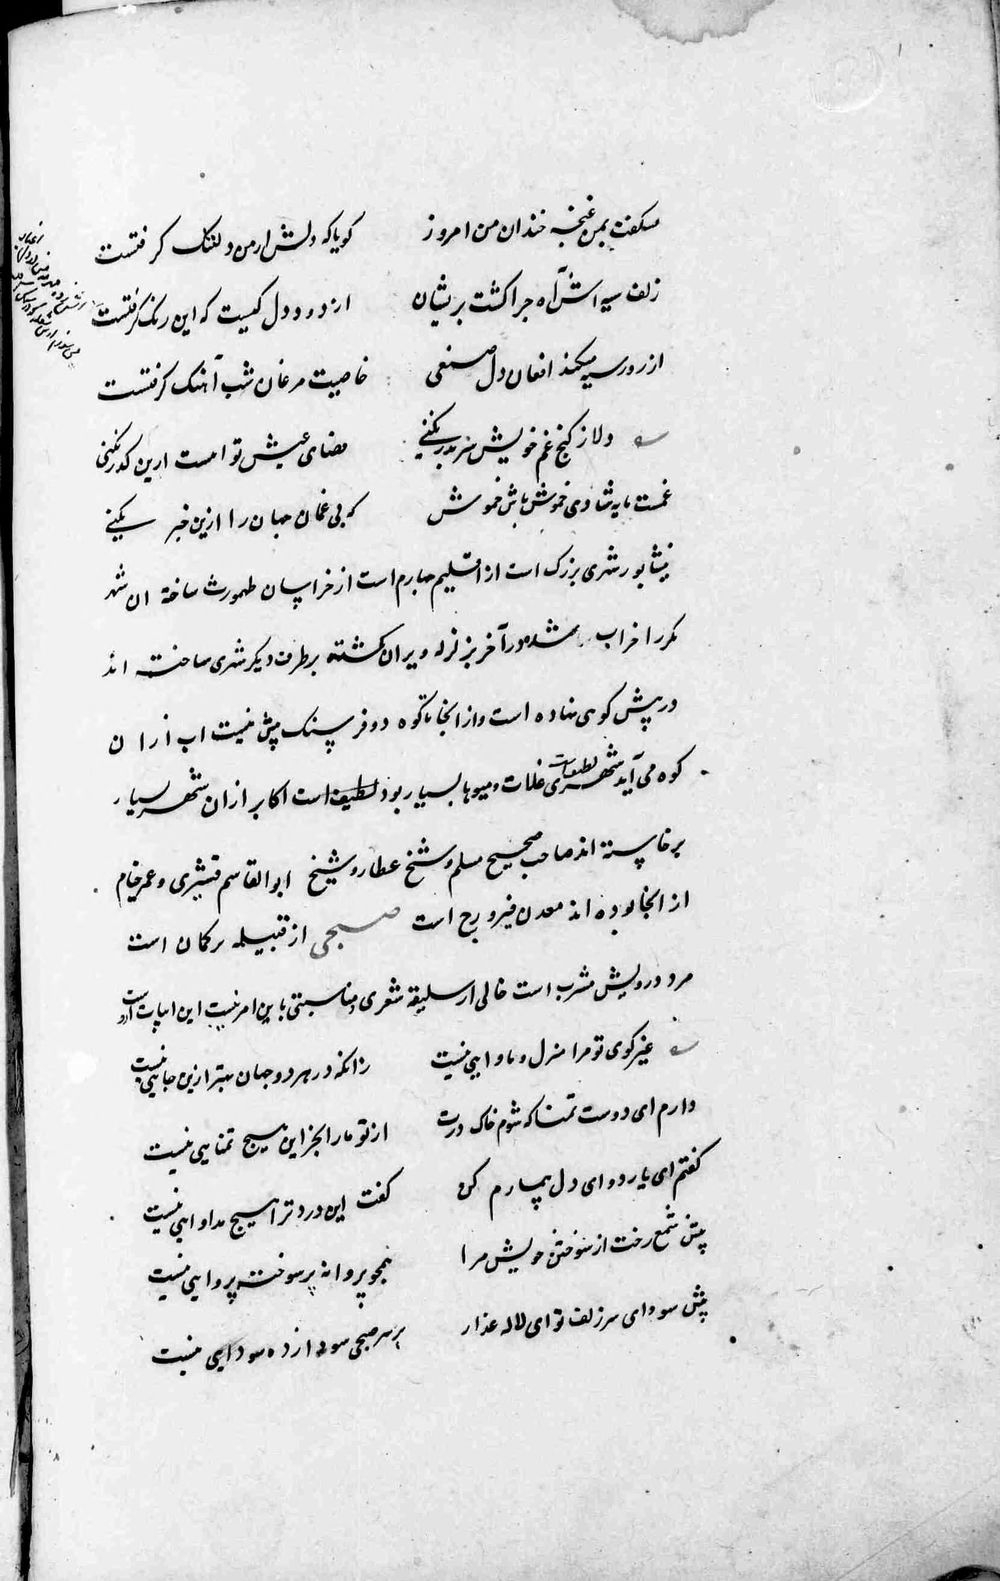 نشکفت بمن غنچه خندان من امروز کویا که دلش از من دلتنک کرفتست
زلف سیه اش آه چرا کشت پریشان از درد دل کیست که این رنک کرفتست
از زور سیه میکند افغان دل صنفی خاصیت مرغان شب آهنک کرفتست
دلا ز کنج غم خویش سر بدر نکنی فضای عیش تو است ازین کذر نکنی
غمست مایه شادی خموش باش خموش که بی غمان جهان را ازین خبر نکنی
نیشابور شهری بزرک است از اقلیم چهارم است از خراسان طهمورث ساخته ان شهر
مکررا خراب شده در آخر بزلزله ویران کشته برطرف دیکر شهری ساخته اند
در پیش کوهی نهاده است و از انجا تا کوه دو فرسنک بیش نیست اب از ان
کوه می آید شهری غلات و میوها بسیار بود لطیف است اکابر از ان شهر بسیار
برخاسته اند صاحب صحیح مسلم و شیخ عطار و شیخ ابوالقاسم قشیری و عمر خیام
از انجا بوده اند معدن فیروزج است صبحی از قبیله ترکمان است
مرد درویش مشرب است خالی از سلیقه شعری و مناسبتی باین امر نیست این ابیات ازوست
غیر کوی تو مرا منزل و ماوایی نیست زانکه در هر دو جهان بهتر ازین جایی نیست
دارم ای دوست تمنا که شوم خاک درت از تو ما را بجز این هیچ تمنایی نیست
کفتم ای یار دوای دل بیمارم کن کفت این درد ترا هیچ مداوایی نیست
پیش شمع رخت از سوختن خویش مرا همچو پروانه پر سوخته پروایی نیست
پیش سودای سر زلف تو ای لاله عذار بر سر صبحی سودازده سودایی نیست